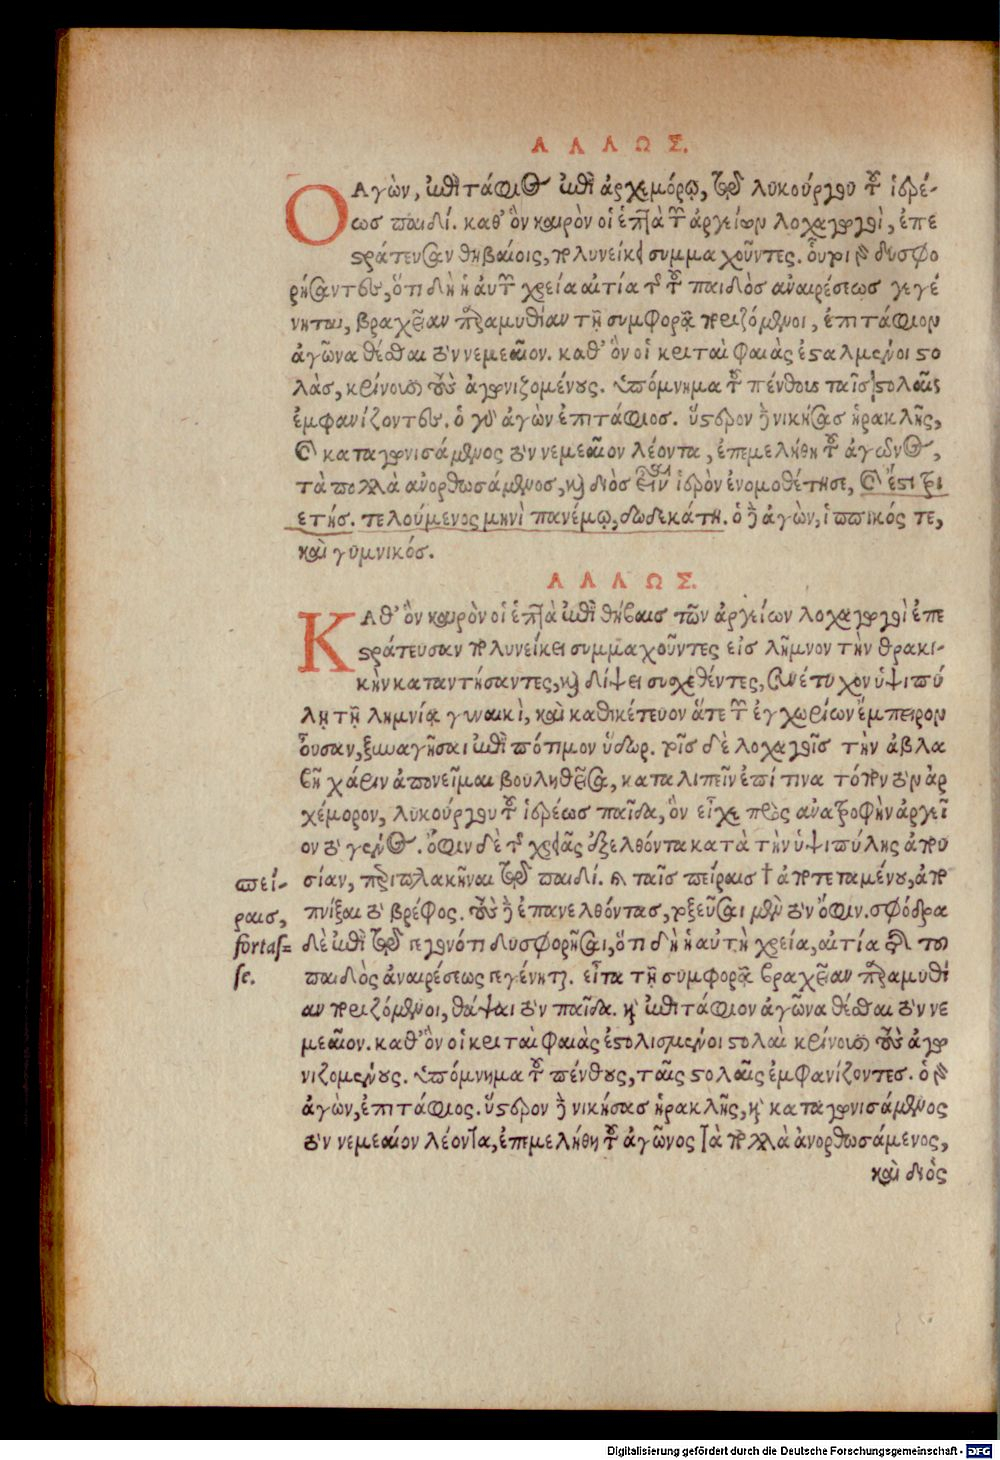 ΑΛΛΩΣ.
Ο Αγὼν, ἐπιτάφιος ἐπὶ ἀρχεμόρῳ, τῷ λυκούργου τοῦ ἱερέ-
ως παιδί. καθ' ὃν καιρὸν οἱ ἑπτὰ τῶν ἀργείων λοχαγωγοὶ, ἐπε
στράτευσαν θηβαίοις, πολυνείκει συμμαχοῦντες. οὗτοι γὰρ δυσφο
ρήσαντες, ὅτι δὴ ἡ αὐτῶν χρεία αἰτία τῆς τοῦ παιδὸς ἀναιρέσεως γεγέ
νηται, βραχεῖαν παραμυθίαν τῇ συμφορᾷ ποριζόμενοι, ἐπιτάφιον
ἀγῶνα θέσθαι τὸν νεμεαῖον. καθ' ὃν οἱ κριταὶ φαιὰς ἐσταλμένοι στο
λὰς, κρίνουσι τοὺς ἀγωνιζομένους. ὑπόμνημα τοῦ πένθους ταῖς στολαῖς
ἐμφανίζοντες. ὁ γὰρ ἀγὼν ἐπιτάφιος. ὕστερον δὲ νικήσας ἡρακλῆς,
καὶ καταγωνισάμενος τὸν νεμεαῖον λέοντα, ἐπεμελήθη τοῦ ἀγῶνος,
τὰ πολλὰ ἀνορθωσάμενος, καὶ διὸς εἶναι ἱερὸν ἐνομοθέτησε, καὶ ἔστι τρι
ετής. τελούμενος μηνὶ πανέμῳ, δωδεκάτῃ. ὁ δὲ ἀγὼν, ἱππικός τε,
καὶ γυμνικός.
ΑΛΛΩΣ.
ΚΑθ' ὃν καιρὸν οἱ ἑπτὰ ἐπὶ θήβαις τῶν ἀργείων λοχαγωγοὶ ἐπε
στράτευσαν πολυνείκει συμμαχοῦντες εἰς λῆμνον τὴν θρακι-
κὴν καταντήσαντες, καὶ δίψει συσχεθέντες, συνέτυχον ὑψιπύ
λῃ τῇ λημνίᾳ γυναικὶ, καὶ καθικέτευον ἅτε τῶν ἐγχωρίων ἔμπειρον
οὖσαν, ξεναγῆσαι ἐπὶ πότιμον ὕδωρ. τοῖς δὲ λοχαγοῖς τὴν ἀβλα
βῆ χάριν ἀπονεῖμαι βουληθεῖσα, καταλιπεῖν ἐπί τινα τόπον τὸν ἀρ
χέμορον, λυκούργου τοῦ ἱερέως παῖδα, ὃν εἶχε πρὸς ἀνατροφὴν ἀργεῖ
ον τὸ γένος. ὄφιν δὲ τῆς χρείας ἐξελθόντα κατὰ τὴν ὑψιπύλης ἀπου
σίαν, περιπλακῆναι τῷ παιδί. καὶ ταῖς πείραις † ἀποτεταμένου, ἀπο
πνίξαι τὸ βρέφος. τοὺς δὲ ἐπανελθόντας, τοξεῦσαι μὲν τὸν ὄφιν. σφόδρα
δὲ ἐπὶ τῷ γεγονότι δυσφορῆσαι, ὅτι δὴ ἡ αὐτὴ χρεία, αἰτία τῆς τοῦ
παιδὸς ἀναιρέσεως γεγένηται. εἶτα τῇ συμφορᾷ βραχεῖαν παραμυθί
αν ποριζόμενοι, θάψαι τὸν παῖδα. καὶ ἐπιτάφιον ἀγῶνα θέσθαι τὸν νε
μεαῖον. καθ' ὃν οἱ κριταὶ φαιὰς ἐστολισμένοι στολαὶ κρίνουσι τοὺς ἀγω
νιζομένους. ὑπόμνημα τοῦ πένθους, ταῖς στολαῖς ἐμφανίζοντες. ὁ γὰρ
ἀγὼν, ἐπιτάφιος. ὕστερον δὲ νικήσας ἡρακλῆς, καὶ καταγωνισάμενος
τὸν νεμεαῖον λέοντα, ἐπεμελήθη τοῦ ἀγῶνος τὰ πολλὰ ἀνορθωσάμενος,
καὶ διὸς
πεί-
ραις,
fortas=
se.
Digitalisierung gefördert durch die Deutsche Forschungsgemeinschaft - DFG